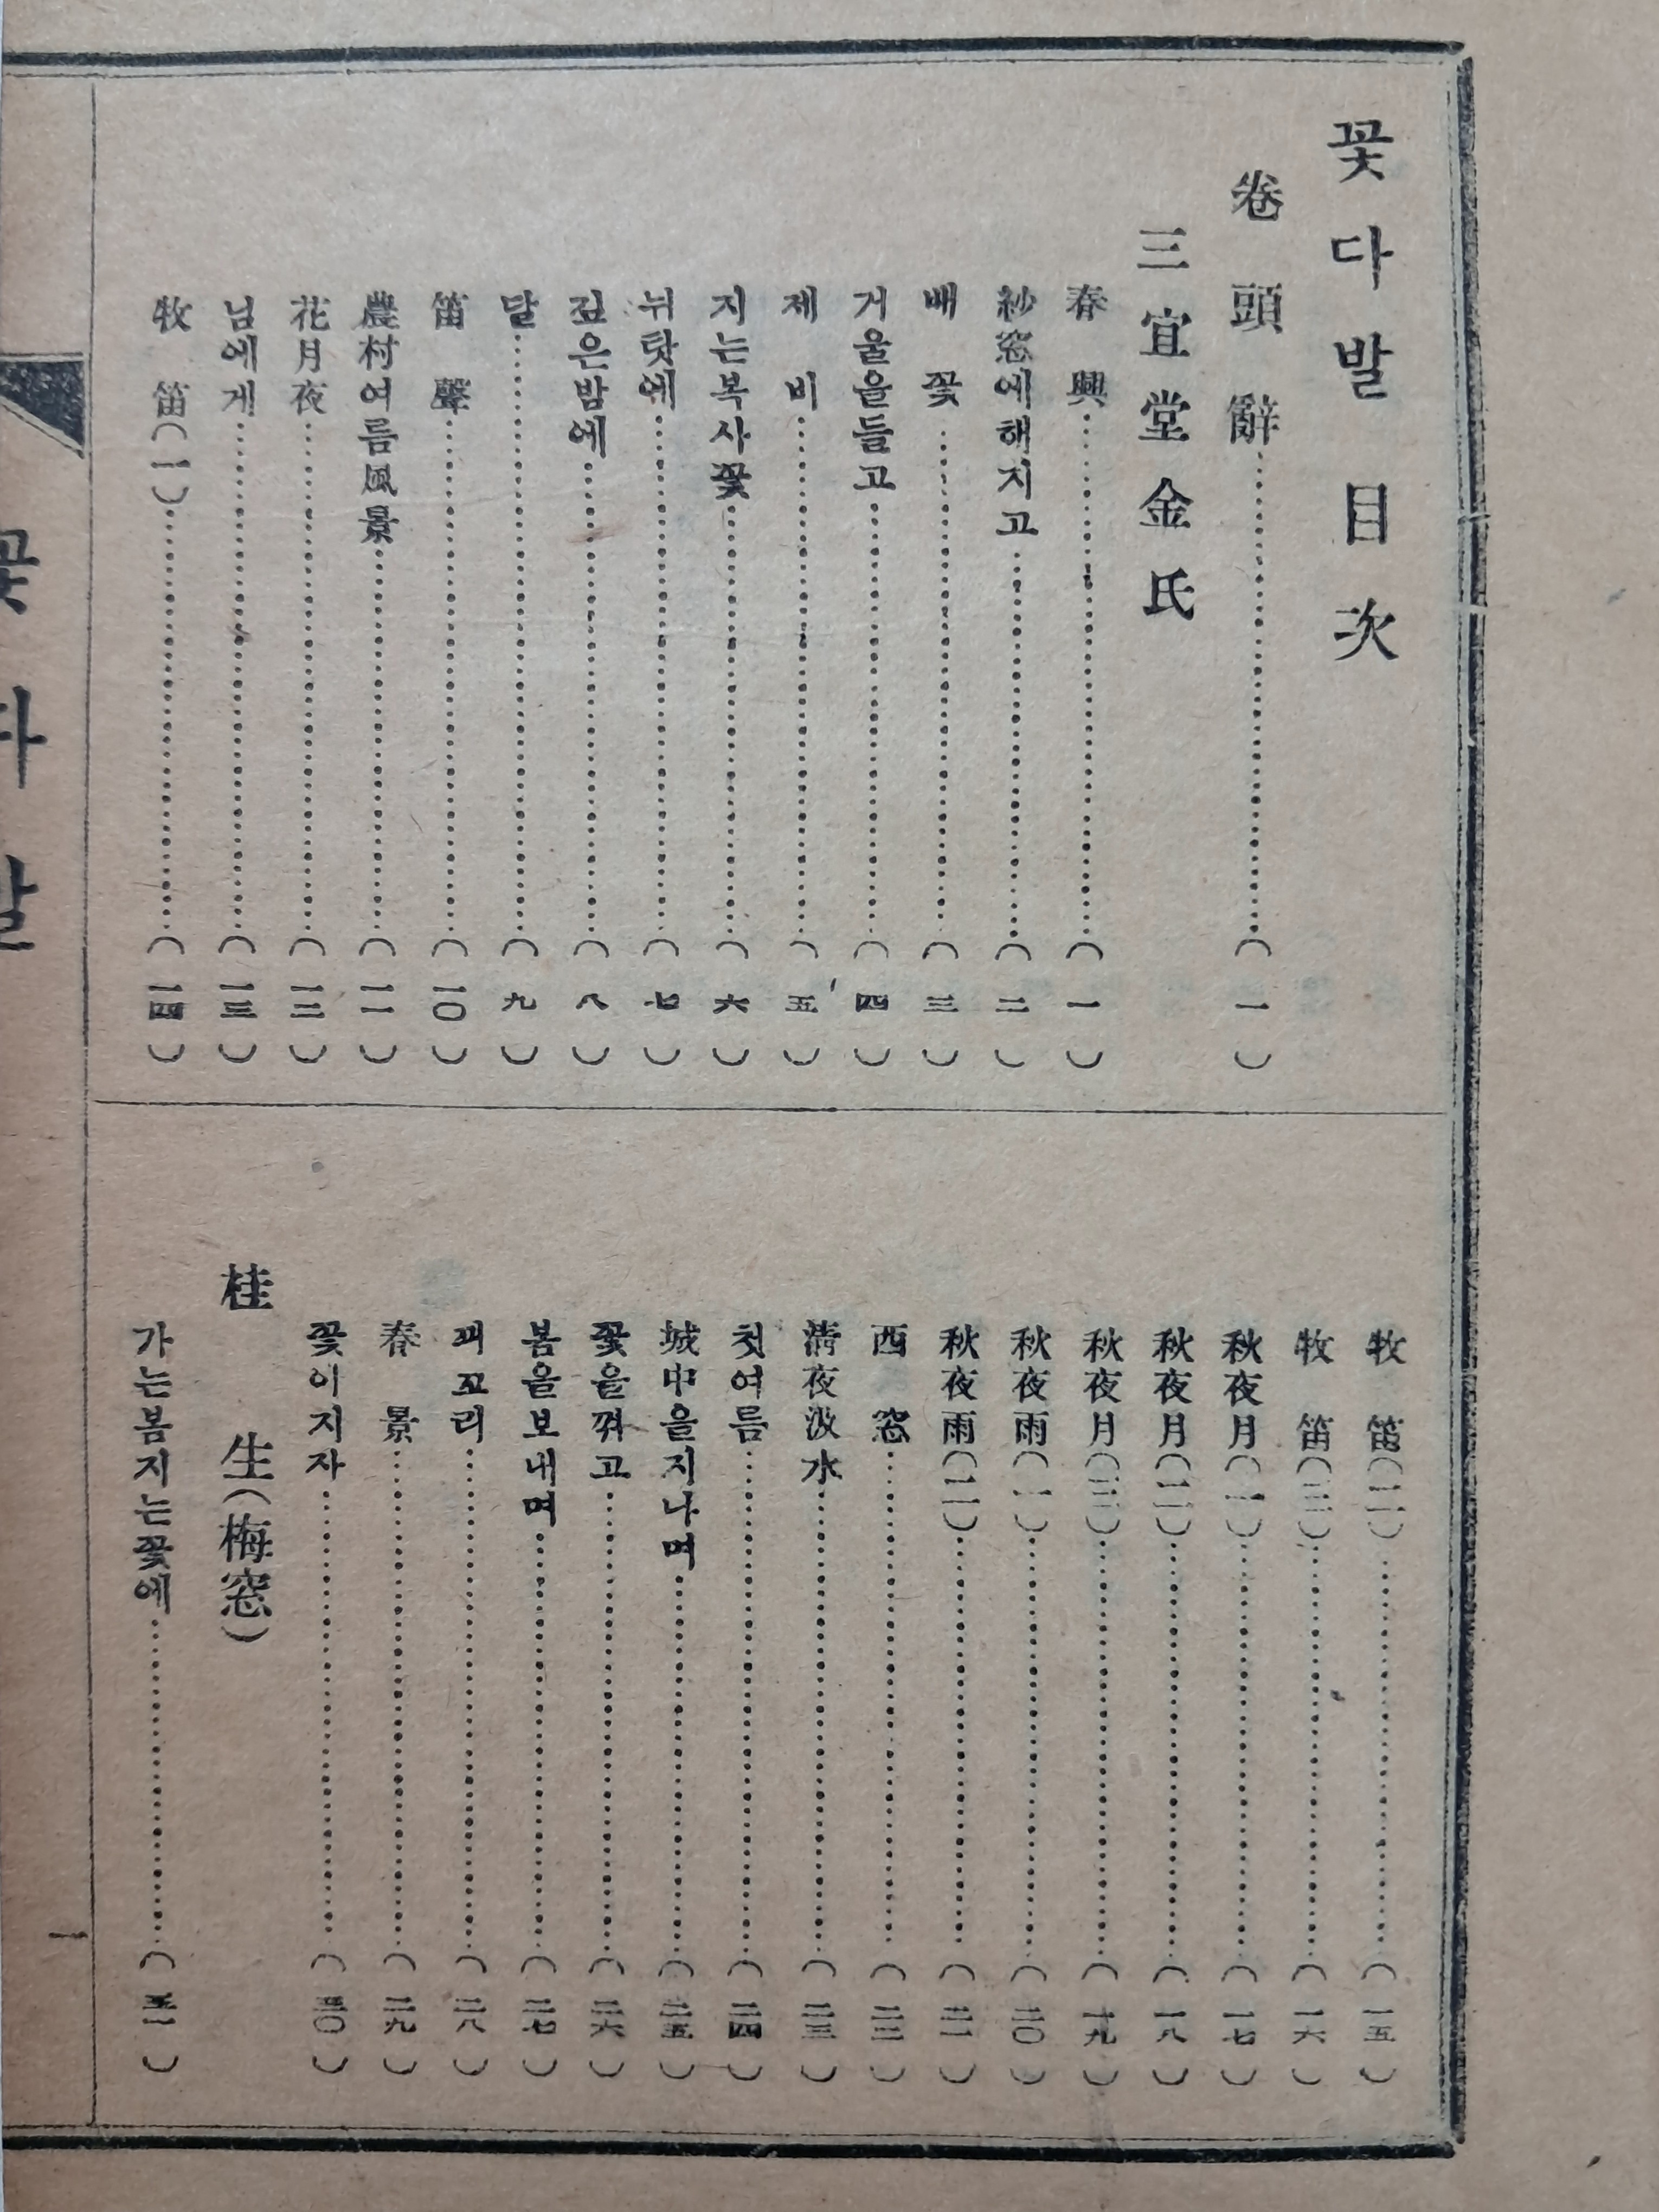 꽃다발 目次
卷頭辭……(一)
三宜堂金氏
春興……(一)
紗窓에해지고……(二)
배꽃……(三)
거울을들고……(四)
제비……(五)
지는복사꽃……(六)
뒤탓에……(七)
깊은밤에……(八)
달……(九)
笛聲……(一〇)
農村여름風景……(一一)
花月夜……(一二)
님에게……(一三)
牧笛(一)……(一四)
牧笛(二)……(一五)
牧笛(三)……(一六)
秋夜月(一)……(一七)
秋夜月(二)……(一八)
秋夜月(三)……(一九)
秋夜雨(一)……(二〇)
秋夜雨(二)……(二一)
西窓……(二二)
淸夜汲水……(二三)
첫여름……(二四)
城中을지나며……(二五)
꽃을꺾고……(二六)
봄을보내며……(二七)
꾀꼬리……(二八)
春景……(二九)
꽃이지자……(三〇)
桂生(梅窓)
가는봄지는꽃에……(三一)
꽃다발
一